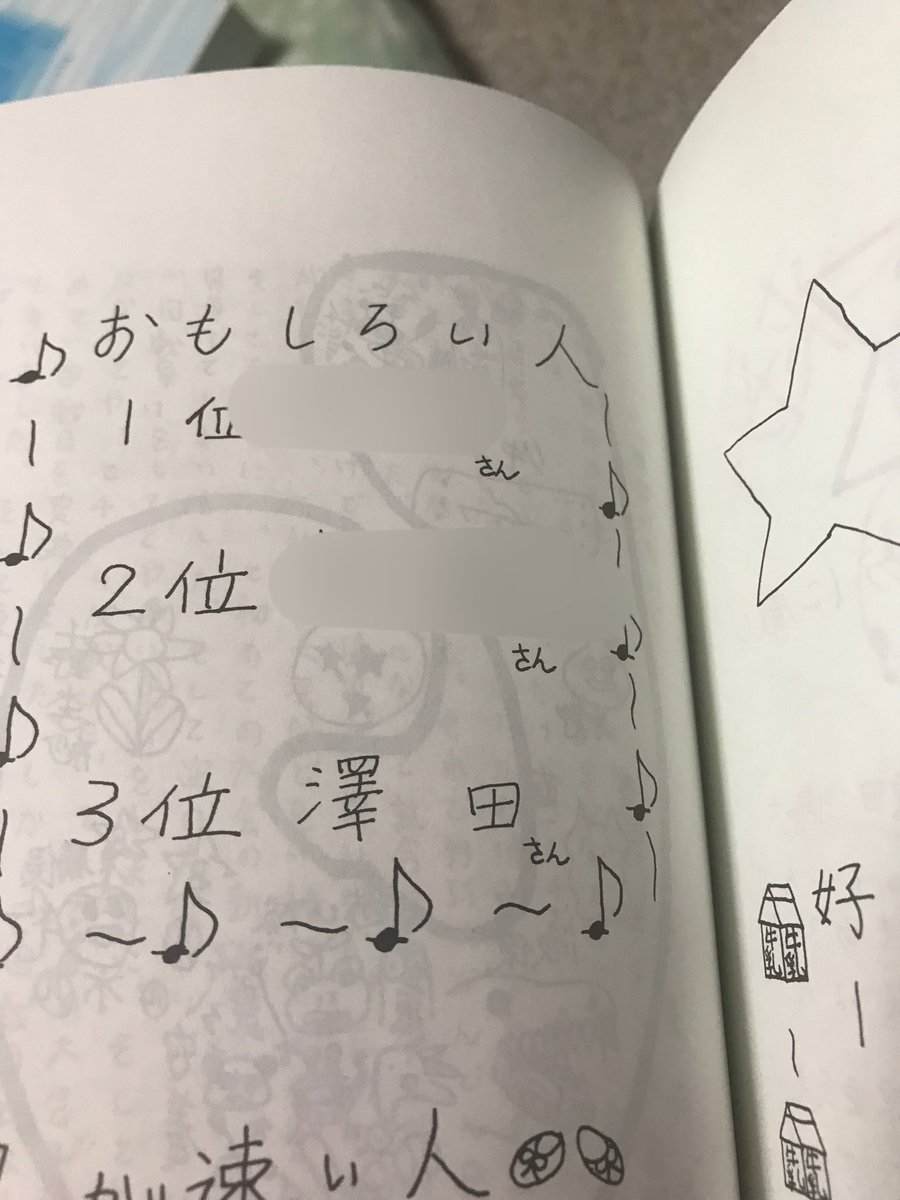 おもしろい人
1位
さん
2位
さん
3位 澤田
さん
が速い人
好
牛乳
牛乳